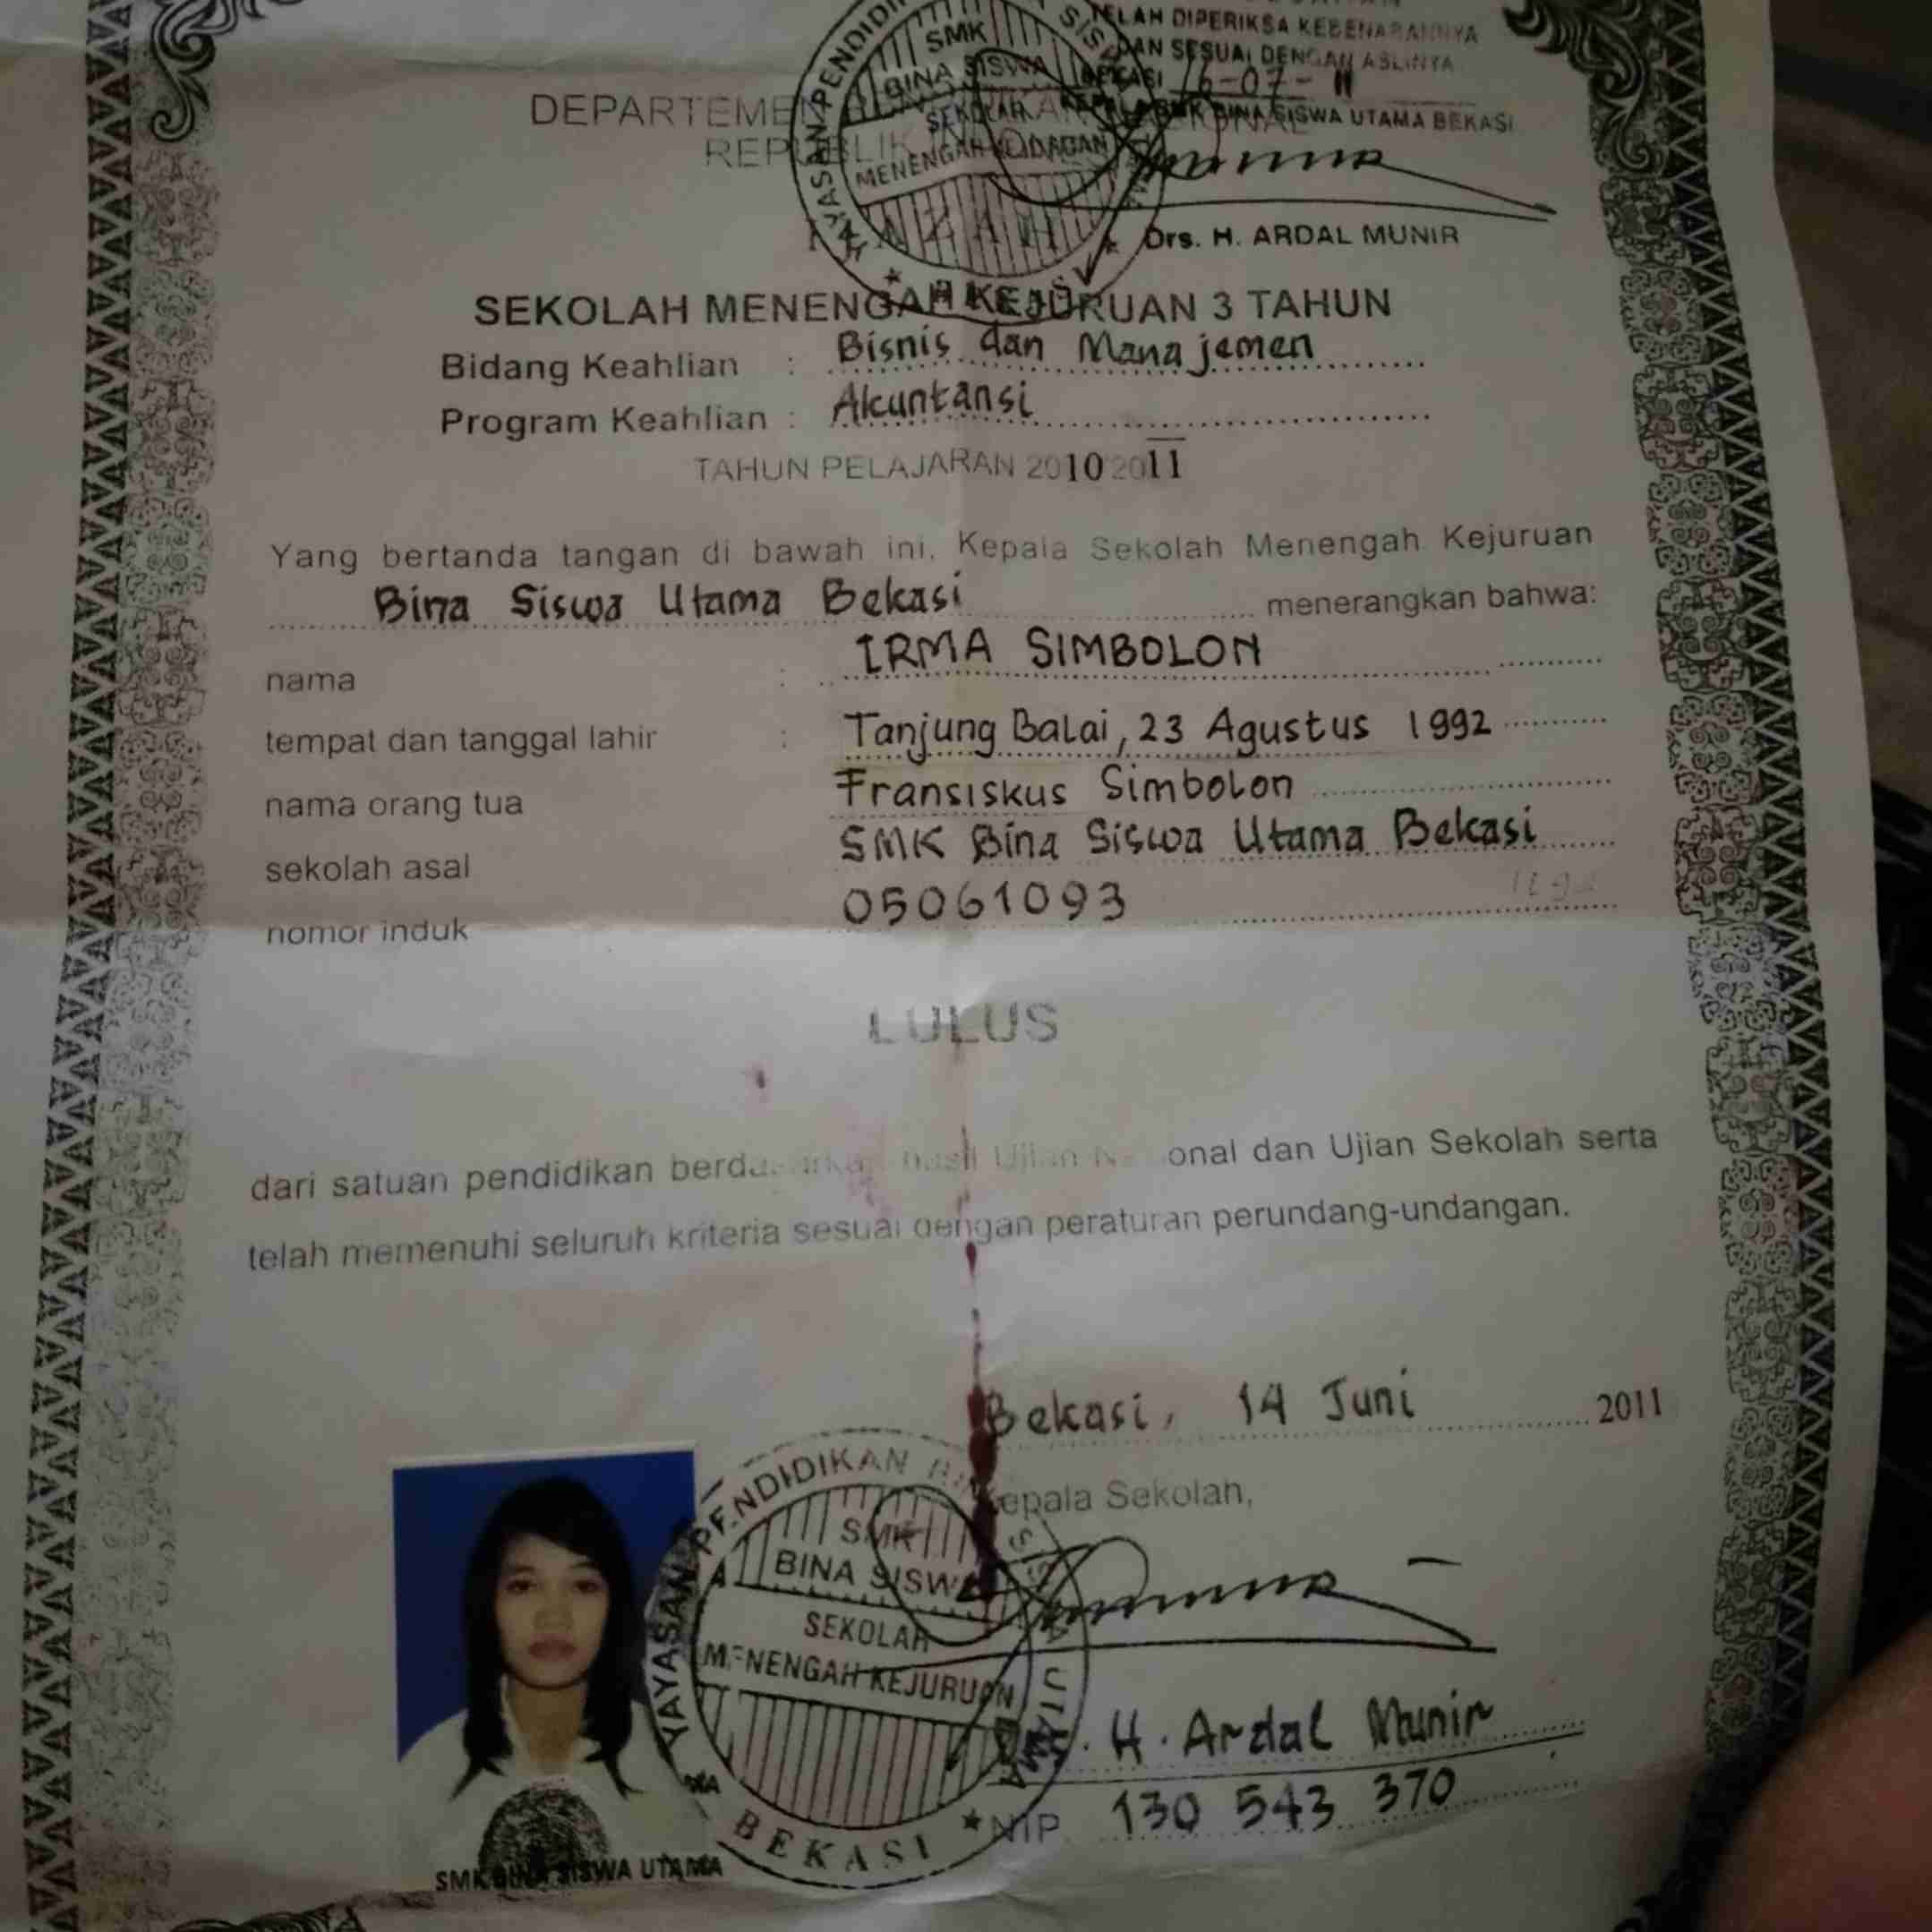 TELAH DIPERIKSA KEBENARANNYA
DAN SESUAI DENGAN ASLINYA
BEKASI 16-07-11
KEPALA SMK BINA SISWA UTAMA BEKASI
Drs. H. ARDAL MUNIR
SMK
BINA SISWA
SEKOLAH
MENENGAH KEJURUAN
DEPARTEMEN PENDIDIKAN NASIONAL
REPUBLIK INDONESIA
IJAZAH
SEKOLAH MENENGAH KEJURUAN 3 TAHUN
Bidang Keahlian : Bisnis dan Manajemen
Program Keahlian : Akuntansi
TAHUN PELAJARAN 2010 2011
Yang bertanda tangan di bawah ini, Kepala Sekolah Menengah Kejuruan
Bina Siswa Utama Bekasi menerangkan bahwa:
nama : IRMA SIMBOLON
tempat dan tanggal lahir : Tanjung Balai, 23 Agustus 1992
nama orang tua Fransiskus Simbolon
sekolah asal SMK Bina Siswa Utama Bekasi
nomor induk 05061093
LULUS
dari satuan pendidikan berdasarkan hasil Ujian Nasional dan Ujian Sekolah serta
telah memenuhi seluruh kriteria sesuai dengan peraturan perundang-undangan.
Bekasi, 14 Juni 2011
Kepala Sekolah,
YAYASAN PENDIDIKAN BINA SISWA UTAMA
SMK
BINA SISWA
SEKOLAH
MENENGAH KEJURUAN
BEKASI
H. Ardal Munir
NIP 130 543 370
SMK BINA SISWA UTAMA